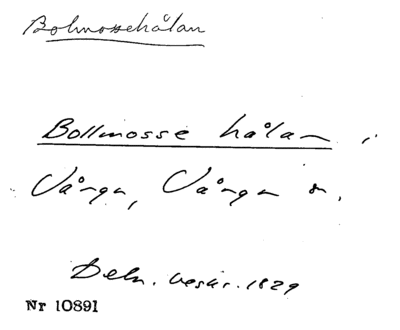 Bolmossehålan
Bollmosse hålan i
Vånga, Vånga s.
Deln. beskr. 1829
Nr 10891